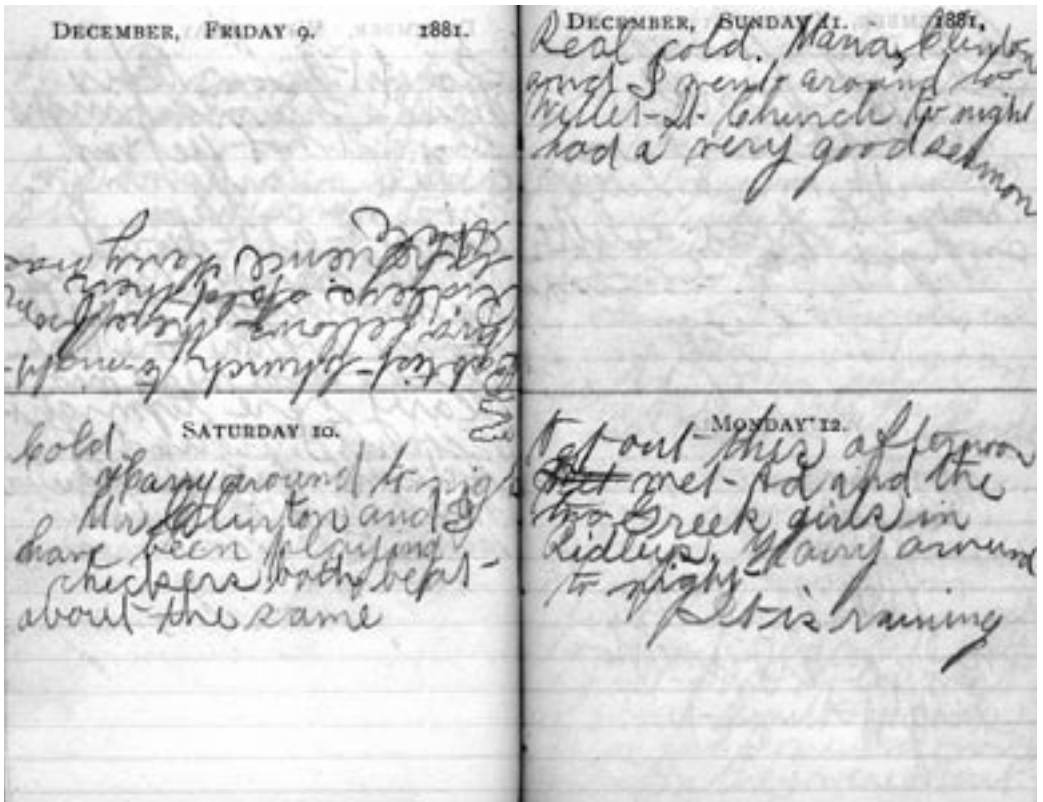 DECEMBER, FRIDAY 9. 1881.
Baptist-Church to-night-
fellows
Ridleys
Harry was
SATURDAY 10.
Cold
Harry around to nigh
Mr Clinton and I
have been playing
checkers both beat-
about-the same
DECEMBER, SUNDAY 11. 1881.
Real cold. Mana, Clinton
and I went around to
Willet-St-Church to night
had a very good sermon
MONDAY 12.
out-this afternoon
met-Ad and the
two Greek girls in
Ridleys. Harry around
to night-
It is raining